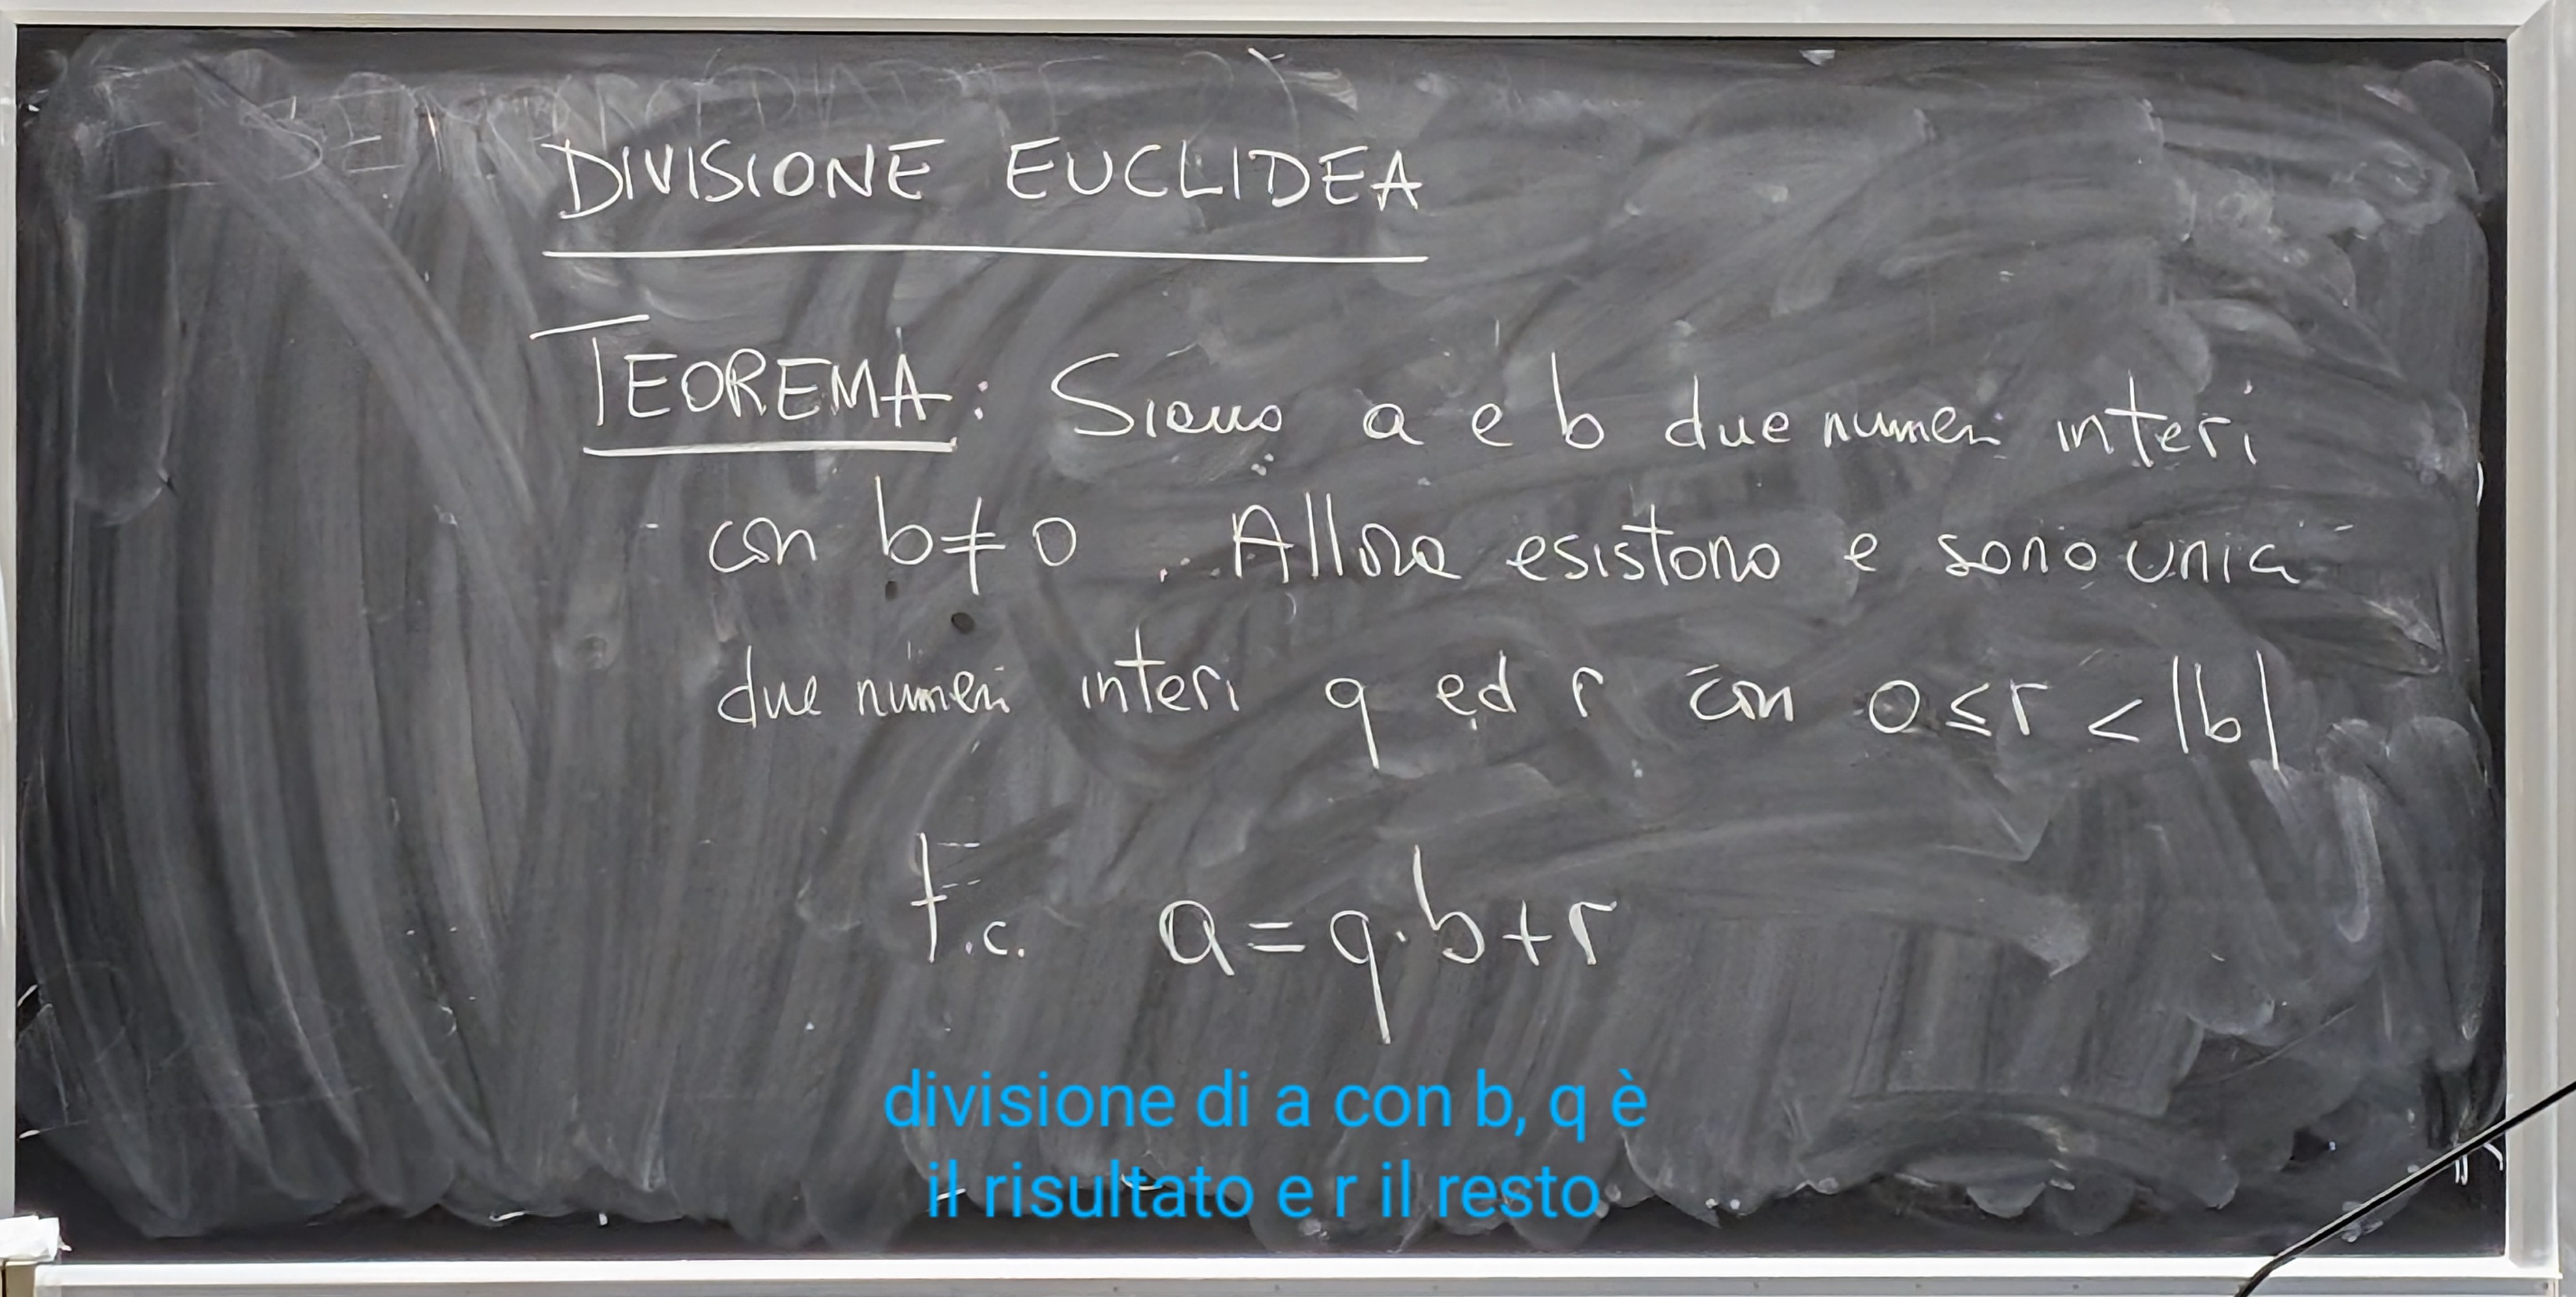 DIVISIONE EUCLIDEA
TEOREMA: Siano a e b due numeri interi
con b≠0. Allora esistono e sono unici
due numeri interi q ed r con 0≤r<|b|
t.c. a=q·b+r
divisione di a con b, q è
il risultato e r il resto